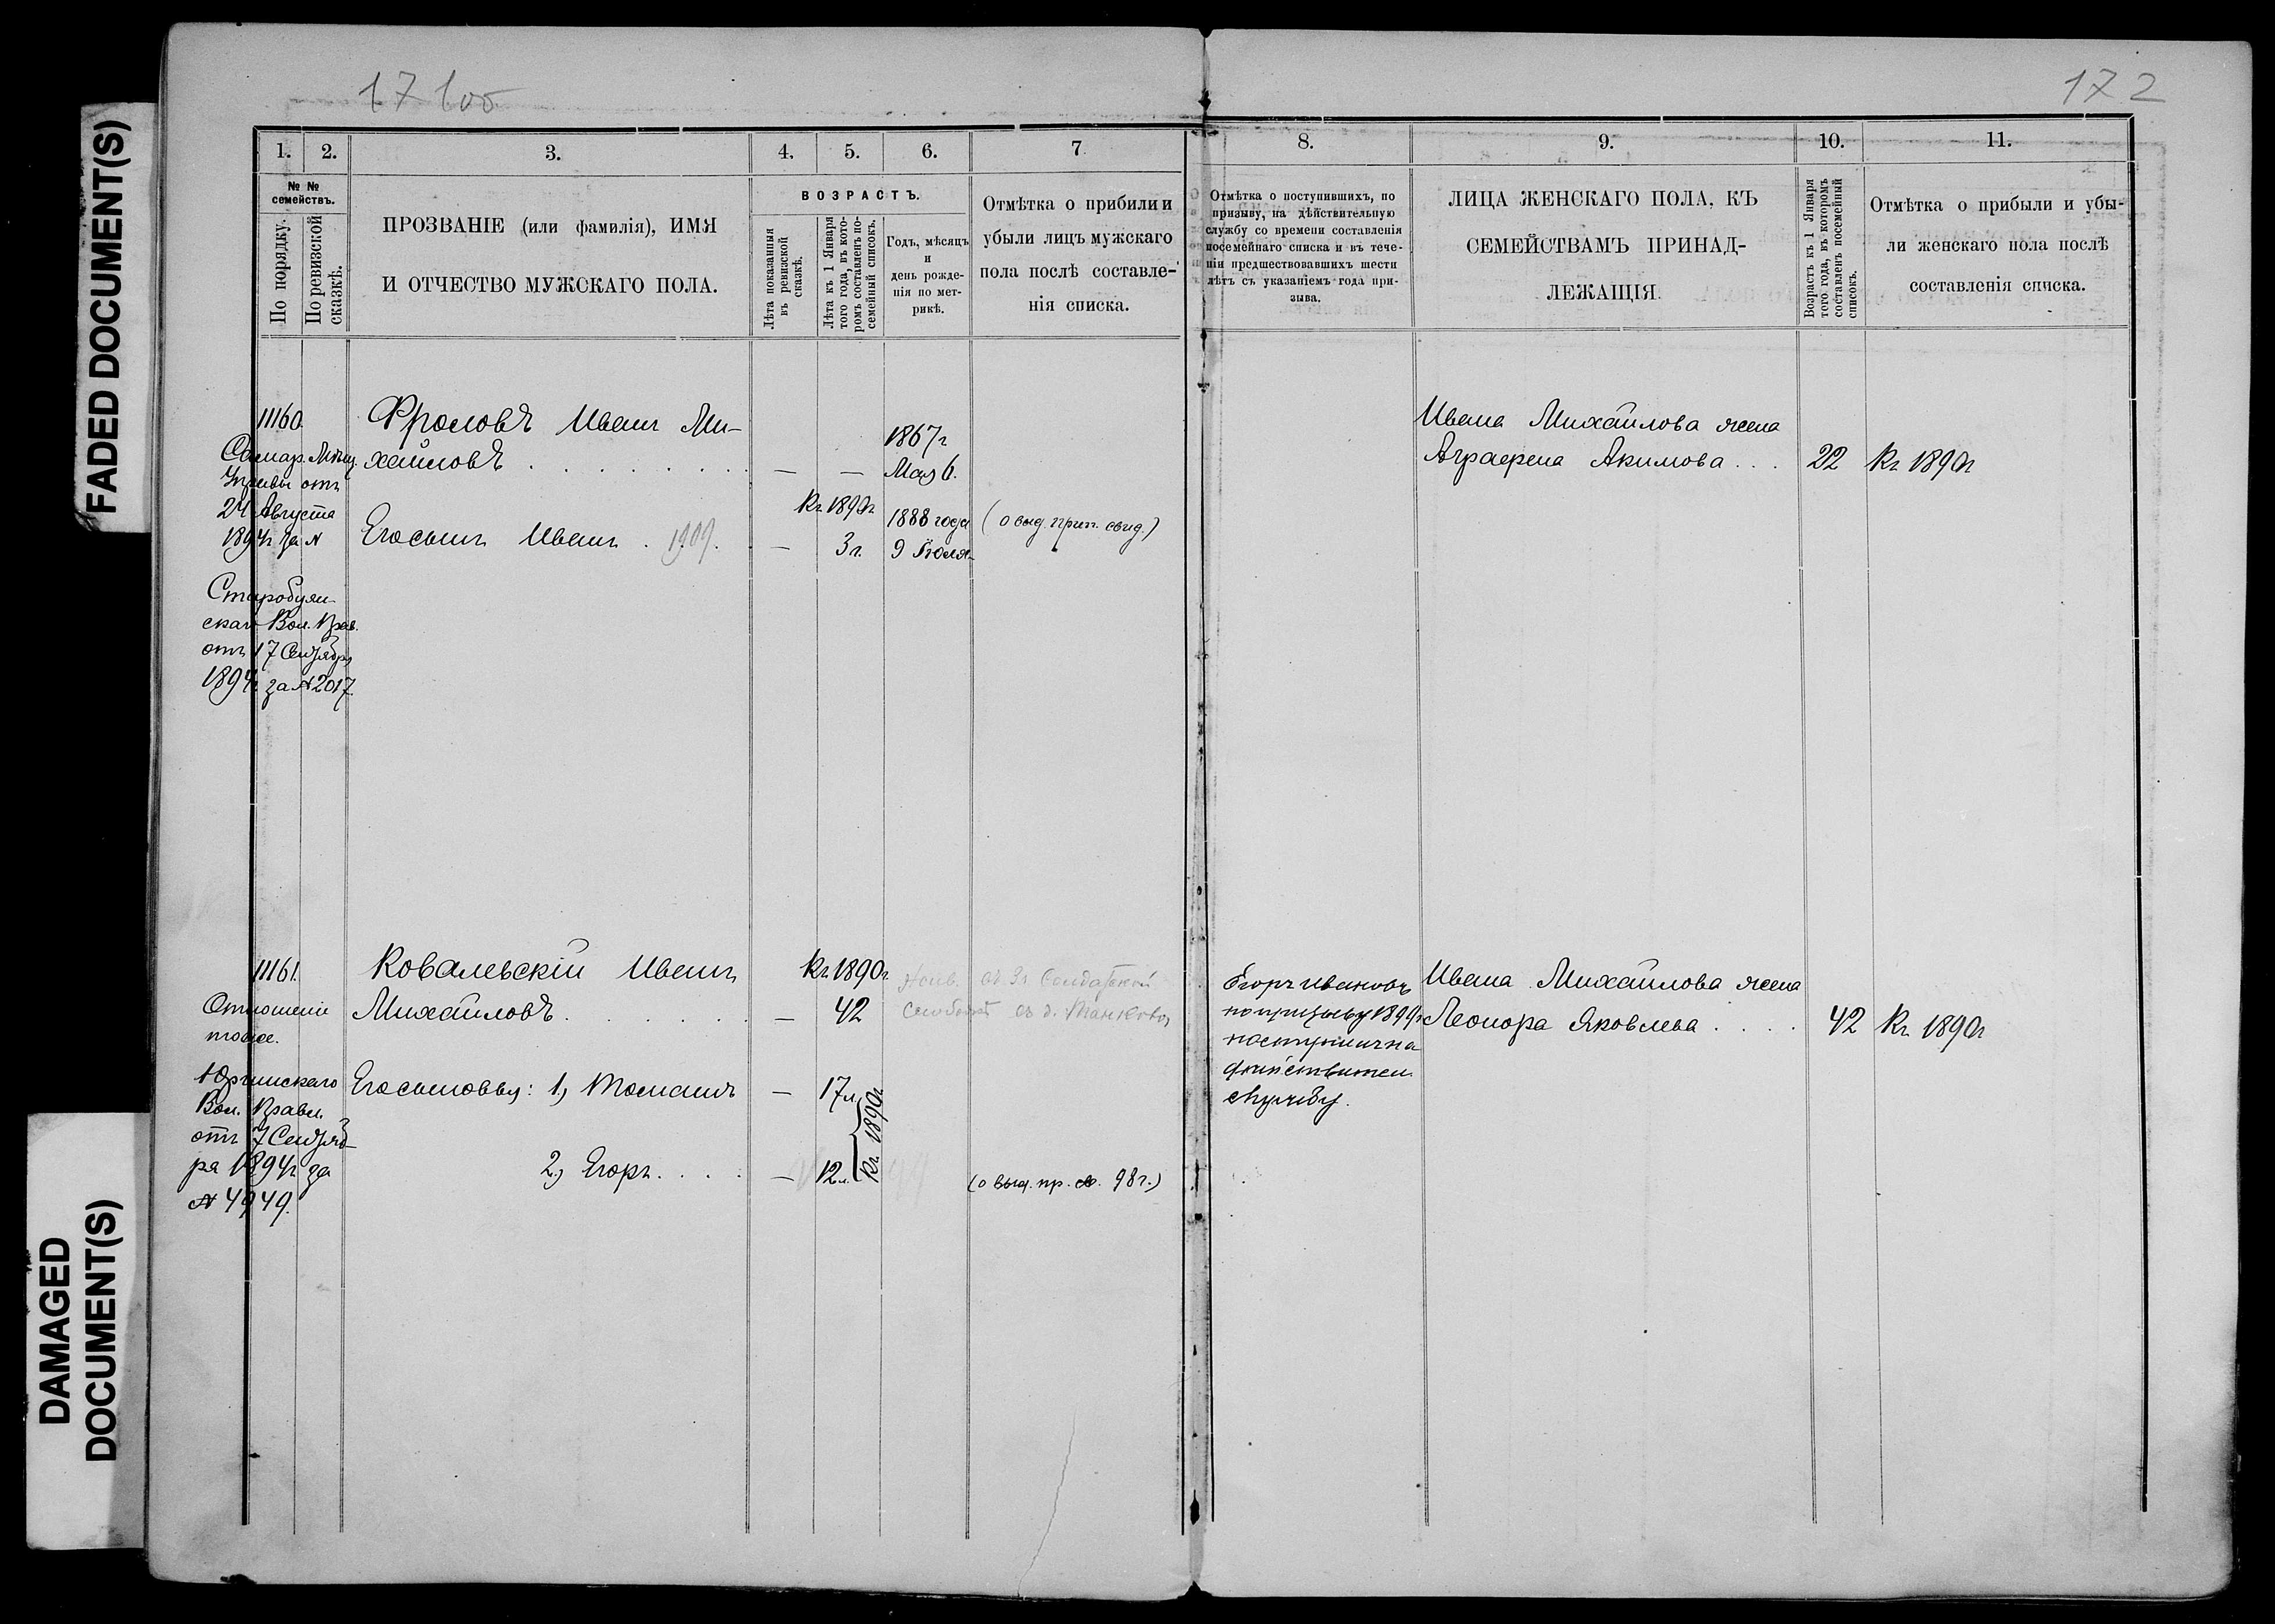 FADED DOCUMENT(S)
DAMAGED
DOCUMENT(S)
171об
172
1.
2.
3.
4.
5.
6.
7
8.
9.
10.
11.
№ №
семействъ.
По порядку.
По ревизской
сказкѣ.
ПРОЗВАНІЕ (или фамилія), ИМЯ
И ОТЧЕСТВО МУЖСКАГО ПОЛА.
ВОЗРАСТЪ.
Лѣта показанныя
въ ревизской
сказкѣ.
Лѣта къ 1 Января
того года, въ кото-
ромъ составленъ по-
семейный списокъ.
Годъ, мѣсяцъ
и
день рожде-
нія по мет-
рикѣ.
Отмѣтка о прибили и
убыли лицъ мужскаго
пола послѣ составле-
нія списка.
Отмѣтка о поступившихъ, по
призыву, на дѣйствительную
службу со времени составленія
посемейнаго списка и въ тече-
ніи предшествовавшихъ шести
лѣтъ съ указаніемъ года при-
зыва.
ЛИЦА ЖЕНСКАГО ПОЛА, КЪ
СЕМЕЙСТВАМЪ ПРИНАД-
ЛЕЖАЩІЯ.
Возрастъ къ 1 Января
того года, въ которомъ
составленъ посемейный
списокъ.
Отмѣтка о прибыли и убы-
ли женскаго пола послѣ
составленія списка.
11160
Самар. Мѣщ.
Управы отъ
24 Августа
1894г за №
Старобуян-
скаго Вол. Прав.
отъ 17 Сентября
1894г за № 2017.
Фроловъ Иванъ Ми-
хайловъ
Егосынъ Иванъ . 1909.
—
—
1867г
Мая 6.
—
Къ 1890г
3 г.
1888 года
9 Іюля
(о выд. прип. свид.)
Ивана Михайлова жена
Аграфена Акимова . . .
22
Къ 1890г
11161.
Отношеніе
тоже.
Юргинскаго
Вол. Правл.
отъ 7 Сентяб-
ря 1894г за
№ 4949.
Ковалевскій Иванъ
Михайловъ
Егосыновья: 1, Томашъ
2, Егоръ. . . .
—
Къ 1890г
42
—
17 л.
—
12 л.
Къ 1890г.
въ д.
(о выд. пр. св. 98 г.)
Егоръ Ивановъ
по призыву 1899г
поступилъ на
дѣйствител
службу.
Ивана Михайлова жена
Леонора Яковлева . . . .
42
Къ 1890г